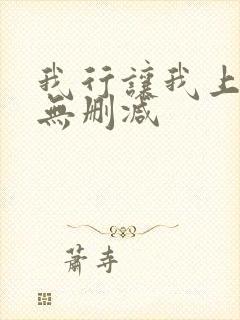 我行讓我上
無刪減
蕭寺